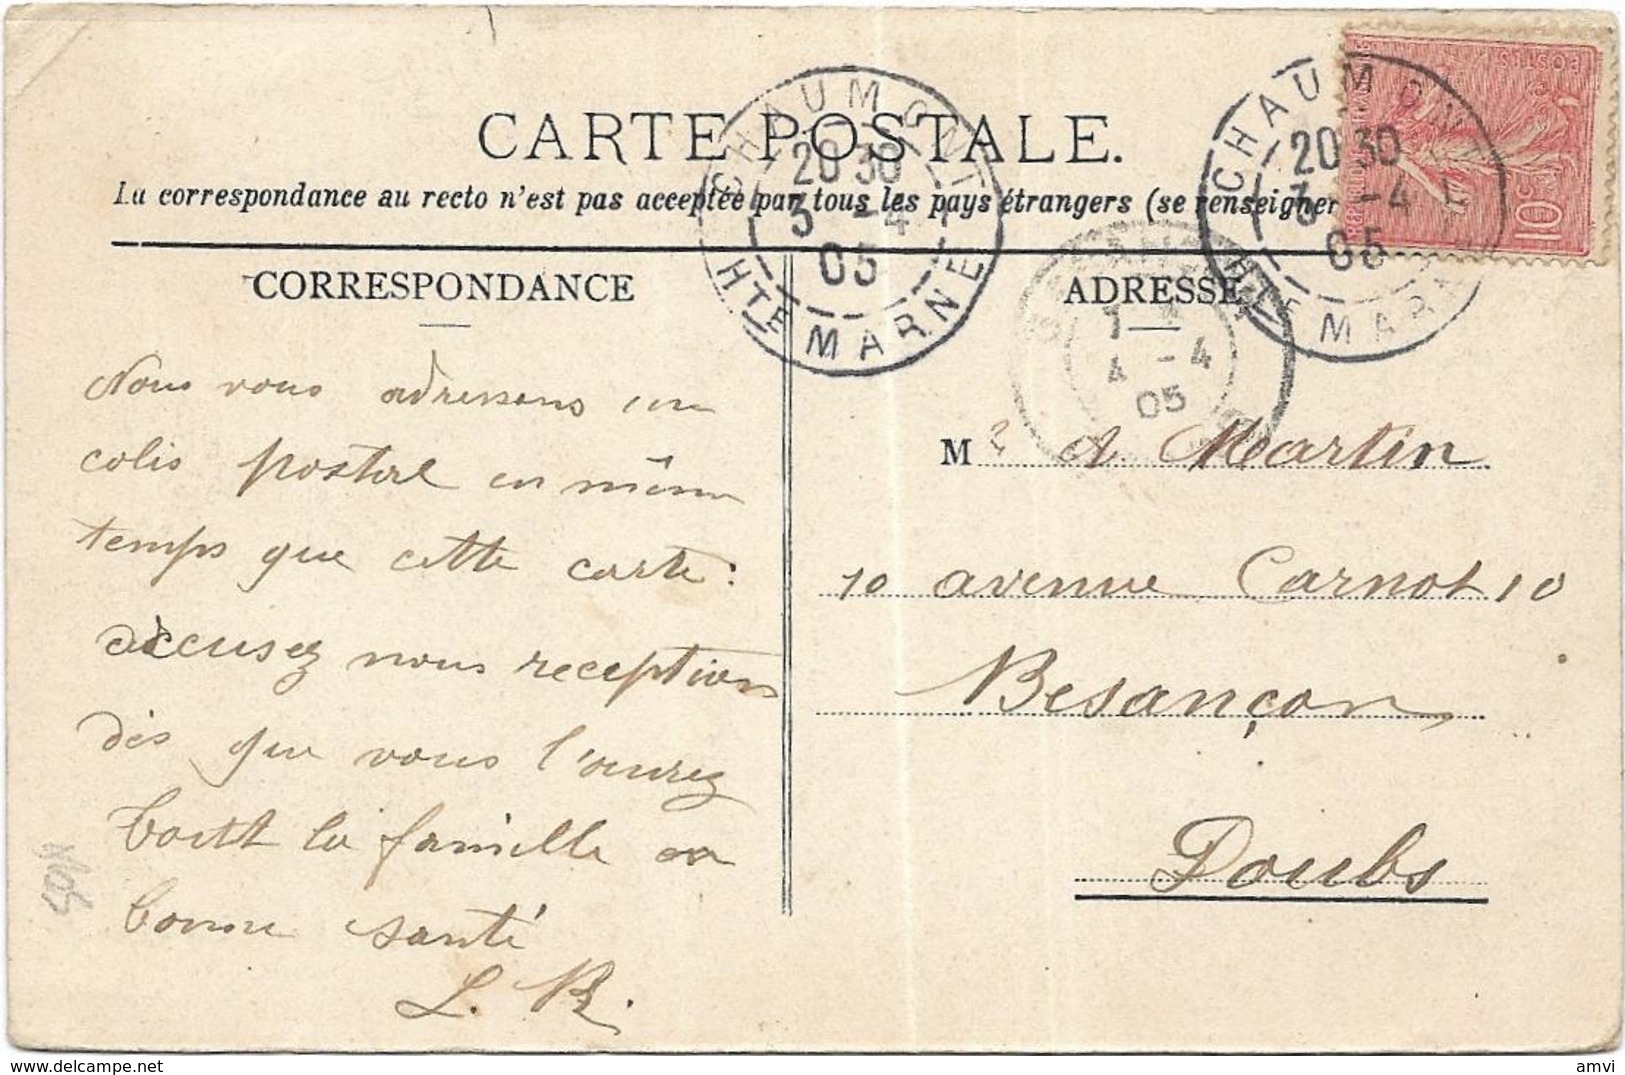 CARTE POSTALE.
La correspondance au recto n'est pas acceptée par tous les pays étrangers (se renseigner
CHAUMONT
20 30
3 -4
05
HTE MARNE
CHAUMONT
20 30
3 -4
05
HTE MARNE
POSTES
10c
4 -4
05
CORRESPONDANCE
Nous vous adressons un
colis postal en même
temps que cette carte:
accusez nous reception
dès que vous l'aurez
Toute la famille en
bonne santé
L. R.
ADRESSE
M r A Martin
10 avenue Carnot 10
Besançon
Doubs
amvi